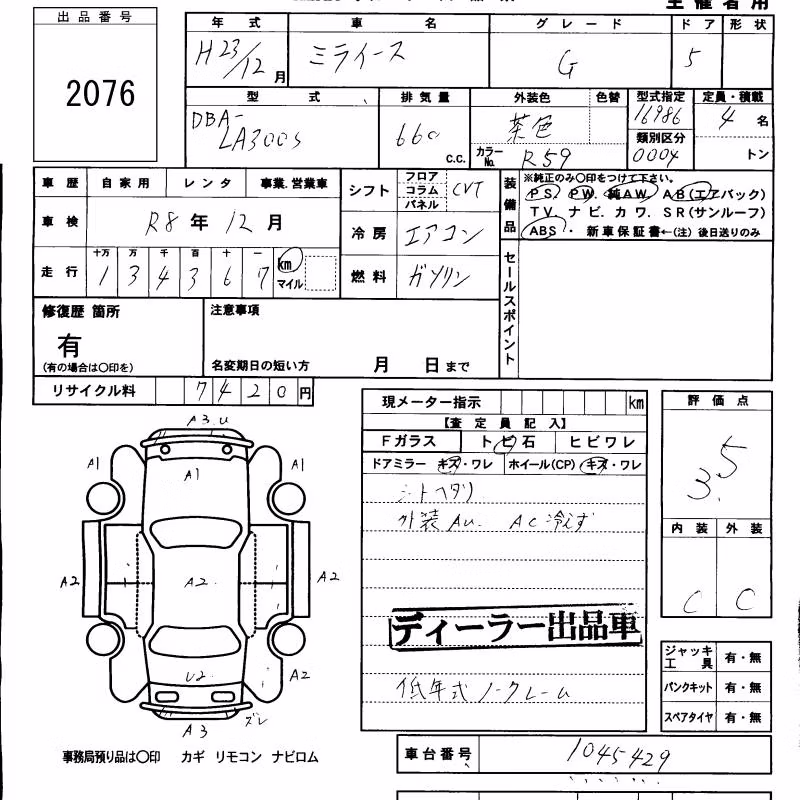 出品番号
2076
年式 車名 グレード ドア 形状
H23/12月 ミライース G 5
型式 排気量 外装色 色替 型式指定 定員・積載
DBA-LA300S 660 c.c. 茶色 16986 4名
カラーNo. R59 類別区分 0004 トン
車歴 自家用 レンタ 事業.営業車
シフト フロア コラム パネル CVT
装備品 ※純正のみ〇印をつけて下さい。
PS. PW. 純AW. AB(エアバック)
TV. ナビ. カワ. SR(サンルーフ)
ABS・ 新車保証書←(注) 後日送りのみ
車検 R8年12月
冷房 エアコン
走行 十万 万 千 百 十 一
134367 km マイル
燃料 ガソリン
セールスポイント
修復歴 箇所 注意事項
有
(有の場合は〇印を) 名変期日の短い方 月 日まで
リサイクル料 7420円
現メーター指示 km
評価点
【査定員記入】
Fガラス トビ石 ヒビワレ
ドアミラー キズ・ワレ ホイール(CP) キズ・ワレ
3.5
シートヘタリ
外装AU. AC冷えず
内装 外装
C C
ディーラー出品車
低年式ノークレーム
A3.U
A1 A1
A1
A2 A2 A2
U2 A2
A3 ズレ
ジャッキ工具 有・無
パンクキット 有・無
スペアタイヤ 有・無
車台番号 1045429
事務局預り品は〇印 カギ リモコン ナビロム